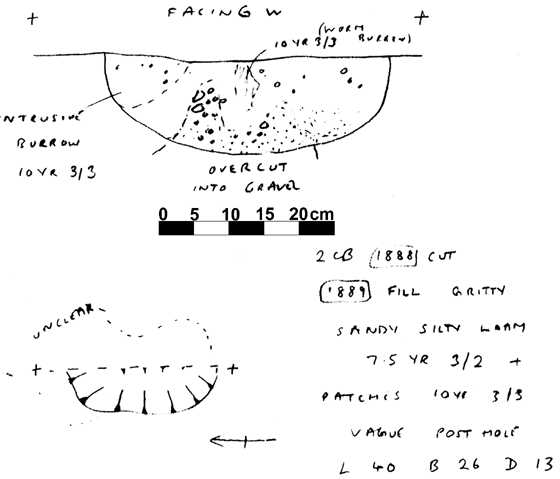 FACING W
(WORM BURROW)
10 YR 3/3
INTRUSIVE
BURROW
10 YR 3/3
OVERCUT
INTO GRAVEL
0 5 10 15 20cm
2 CB 1888 CUT
1889 FILL GRITTY
SANDY SILTY LOAM
7.5 YR 3/2 +
PATCHES 10YR 3/3
VAGUE POST HOLE
L 40 B 26 D 13
UNCLEAR